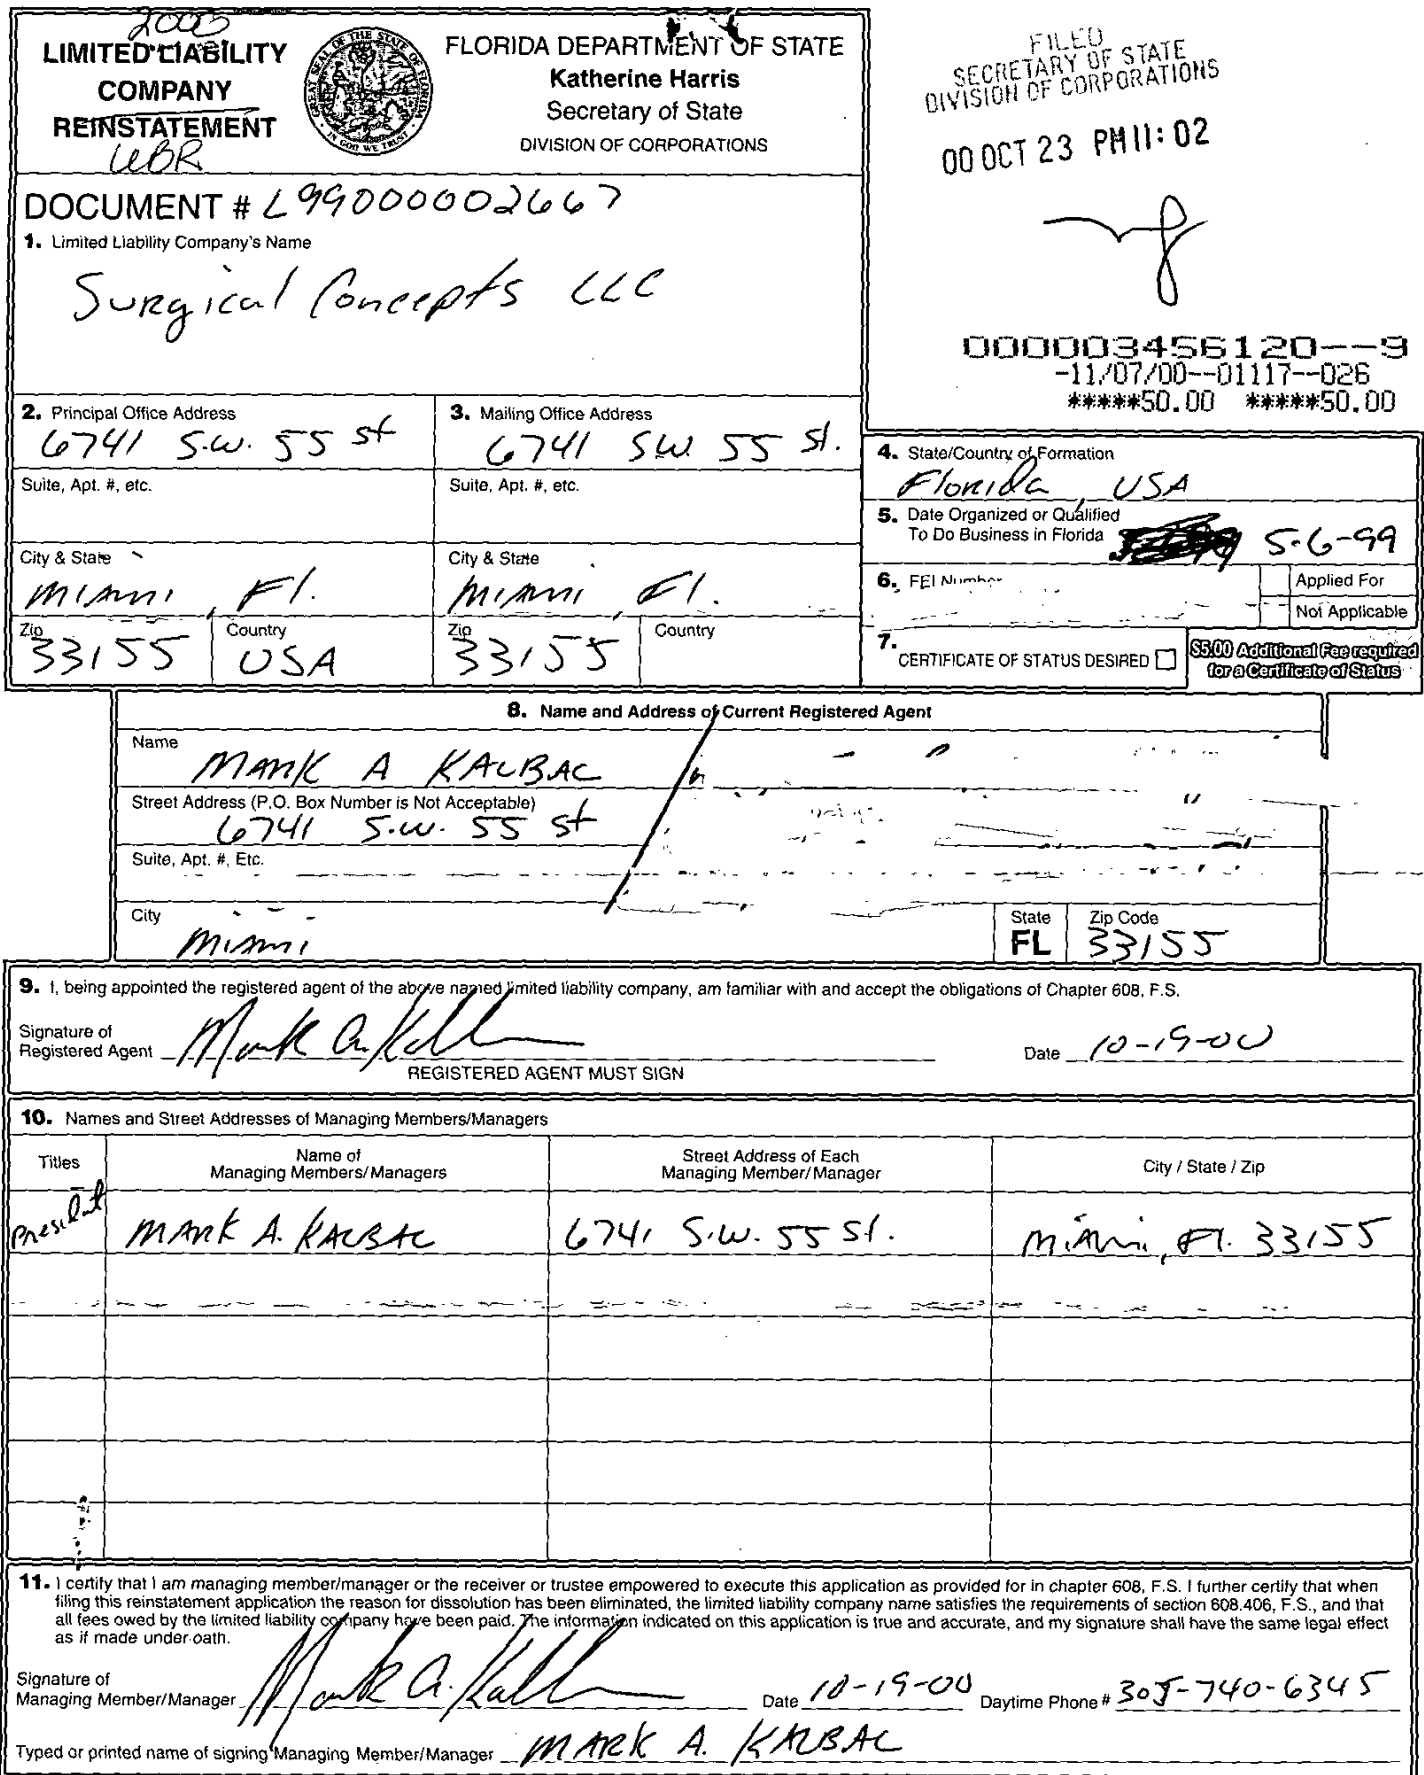 2000
LIMITED LIABILITY
COMPANY
REINSTATEMENT
UBR
FLORIDA DEPARTMENT OF STATE
Katherine Harris
Secretary of State
DIVISION OF CORPORATIONS
FILED
SECRETARY OF STATE
DIVISION OF CORPORATIONS
00 OCT 23 PM 11: 02
DOCUMENT # L99000002667
1. Limited Liability Company's Name
Surgical Concepts LLC
0000003456120--9
-11/07/00--01117--026
*****50.00 *****50.00
2. Principal Office Address
6741 S.W. 55 st
3. Mailing Office Address
6741 SW 55 St.
Suite, Apt. #, etc.
Suite, Apt. #, etc.
City & State
Miami, Fl.
City & State
Miami, Fl.
Zip
33155
Country
USA
Zip
33155
Country
4. State/Country of Formation
Florida, USA
5. Date Organized or Qualified
To Do Business in Florida
5-6-99
6. FEI Number
Applied For
Not Applicable
7. CERTIFICATE OF STATUS DESIRED
$5.00 Additional Fee required
for a Certificate of Status
8. Name and Address of Current Registered Agent
Name
MARK A KALBAC
Street Address (P.O. Box Number is Not Acceptable)
6741 S.W. 55 st
Suite, Apt. #, Etc.
City
Miami
State
FL
Zip Code
33155
9. I, being appointed the registered agent of the above named limited liability company, am familiar with and accept the obligations of Chapter 608, F.S.
Signature of
Registered Agent
Date 10-19-00
REGISTERED AGENT MUST SIGN
10. Names and Street Addresses of Managing Members/Managers
Titles
Name of
Managing Members/Managers
Street Address of Each
Managing Member/Manager
City / State / Zip
President MARK A. KALBAC 6741 S.W. 55 St. Miami, Fl. 33155
11. I certify that I am managing member/manager or the receiver or trustee empowered to execute this application as provided for in chapter 608, F.S. I further certify that when
filing this reinstatement application the reason for dissolution has been eliminated, the limited liability company name satisfies the requirements of section 608.406, F.S., and that
all fees owed by the limited liability company have been paid. The information indicated on this application is true and accurate, and my signature shall have the same legal effect
as if made under oath.
Signature of
Managing Member/Manager
Date 10-19-00 Daytime Phone # 305-740-6345
Typed or printed name of signing Managing Member/Manager MARK A. KALBAC